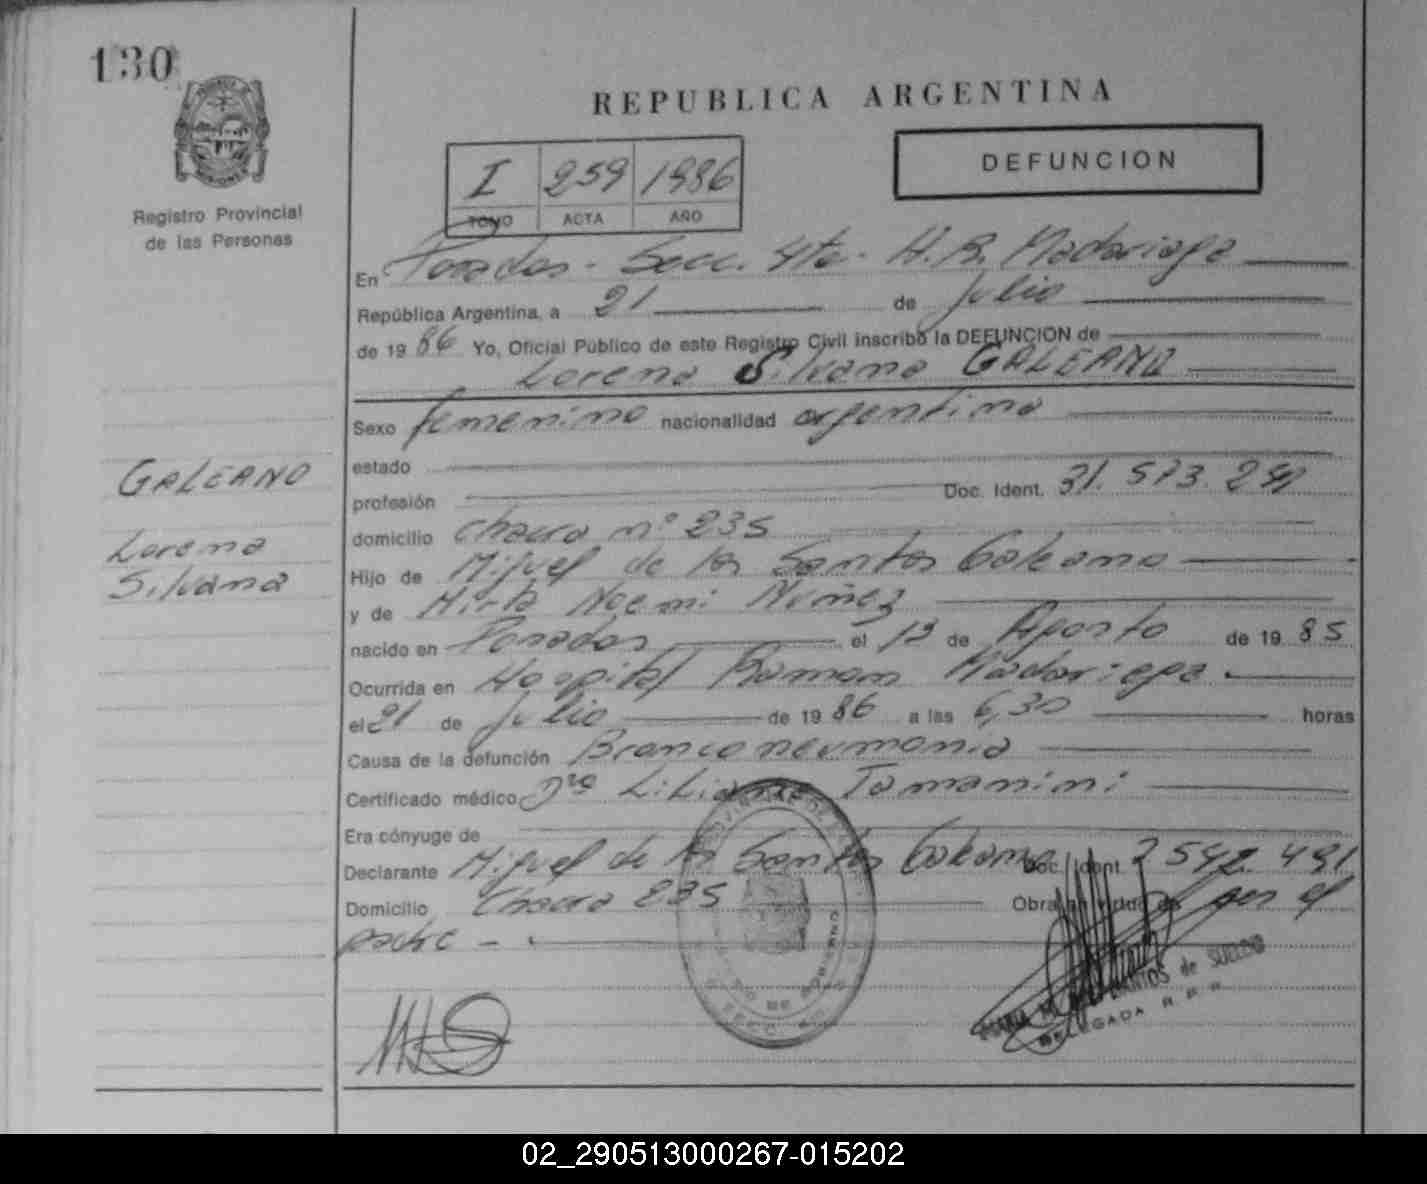 130
REPUBLICA ARGENTINA
I 259 1986
TOMO ACTA AÑO
DEFUNCION
Registro Provincial
de las Personas
En Posadas - Secc. 4ta - H. R. Madariaga
República Argentina, a 21 de Julio
de 1986 Yo, Oficial Público de este Registro Civil inscribo la DEFUNCION de
Lorena Silvana GALEANO
Sexo femenino nacionalidad argentina
estado
profesión Doc. Ident. 31.573.
domicilio chacra nº 235
Hijo de Miguel de los Santos Galeano
y de Mirta Noemi Nuñez
nacido en Posadas el 13 de Agosto de 1985
Ocurrida en Hospital Ramon Madariaga
el 21 de Julio de 1986 a las 6,30 horas
Causa de la defunción Bronconeumonia
Certificado médico Dra Liliana Tomanini
Era cónyuge de
Declarante Miguel de los Santos Galeano Doc. Ident. 7542.491
Domicilio Chacra 235 Obra en virtud de ser el
padre - .
GALEANO
Lorena
Silvana
MARIA SANTOS de SUELDO
DELEGADA R. P. P.
02_290513000267-015202